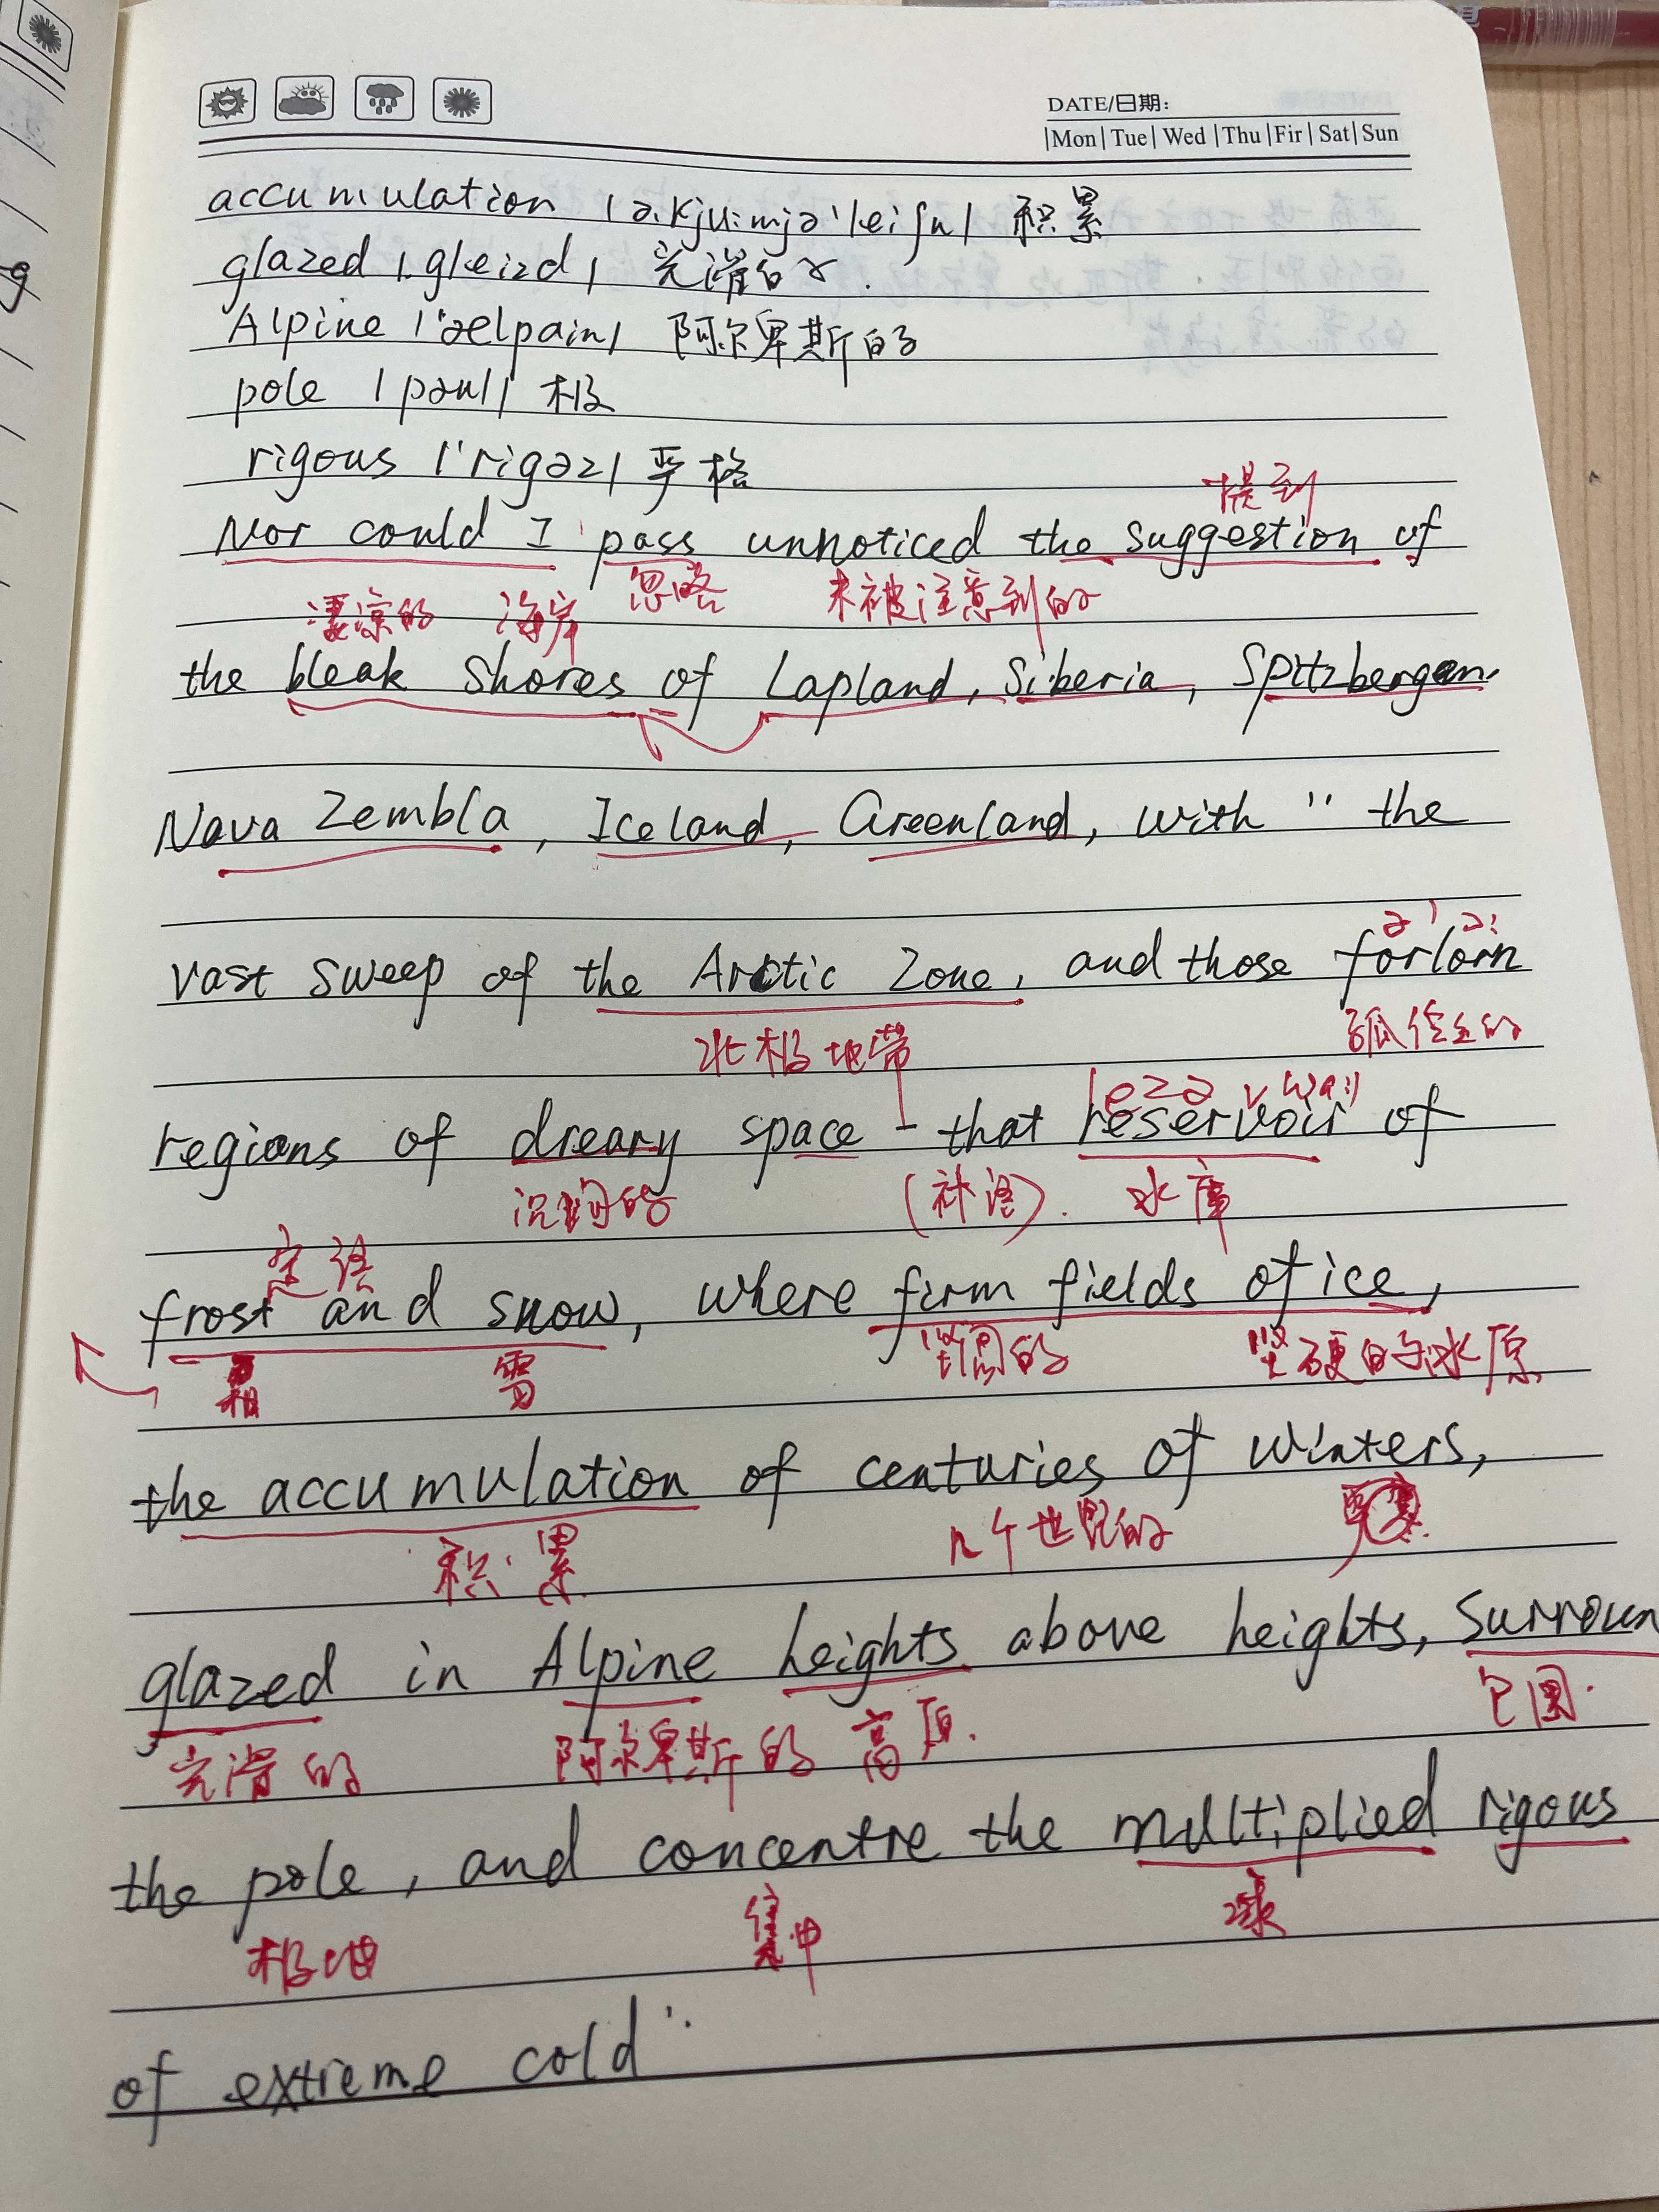 DATE/日期:
|Mon|Tue|Wed|Thu|Fir|Sat|Sun
accumulation |ə.kju:mjə'leiʃn| 积累
glazed |.gleizd| 光滑的
Alpine |'ælpain| 阿尔卑斯的
pole |pəul| 极
rigous |'rigəz| 严格
提到
Nor could I pass unnoticed the suggestion of
忽略 未被注意到的
凄凉的 海岸
the bleak shores of Lapland, Siberia, Spitzbergen.
Nava Zembla, Iceland, Greenland, with "the
ə' ɔ:
vast sweep of the Arctic Zone, and those forlorn
北极地带
regions of dreary space - that reservoir of
沉闷的 (补语). 水库
定语
frost and snow, where firm fields of ice,
霜 雪 坚固的 坚硬的冰原
the accumulation of centuries of winters,
积累 几个世纪的
glazed in Alpine heights above heights, surroun
光滑的 阿尔卑斯的 高原. 包围.
the pole, and concentre the multiplied rigous
极地 集中
of extreme cold".